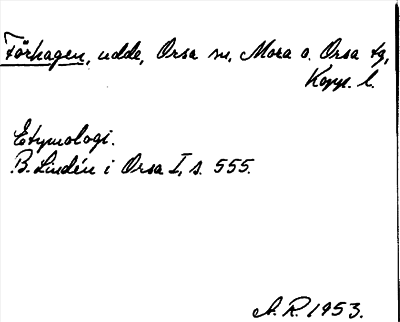 Förhagen, udde, Orsa sn, Mora o. Orsa tg,
Kopp. l.
Etymologi.
B. Lindén i Orsa I, s. 555.
A. R. 1953.